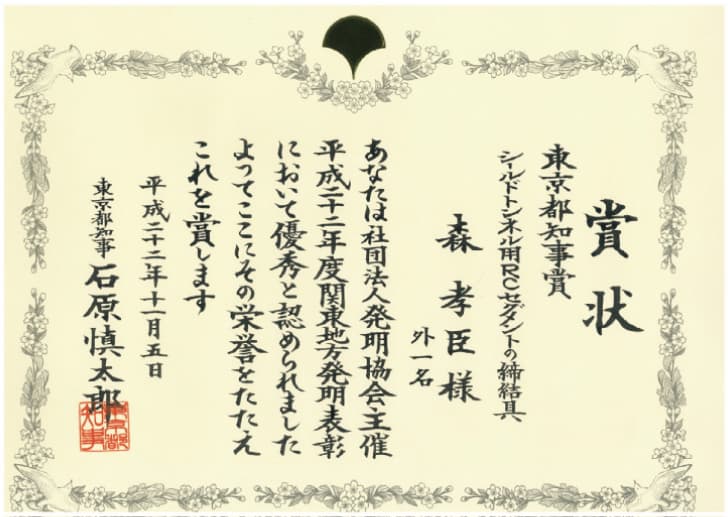 賞状
東京都知事賞
シールドトンネル用RCセグメントの締結具
森 孝臣 様
外一名
あなたは社団法人発明協会主催
平成二十二年度関東地方発明表彰
において優秀と認められました
よってここにその栄誉をたたえ
これを賞します
平成二十二年十一月五日
東京都知事 石原慎太郎
東京都知事